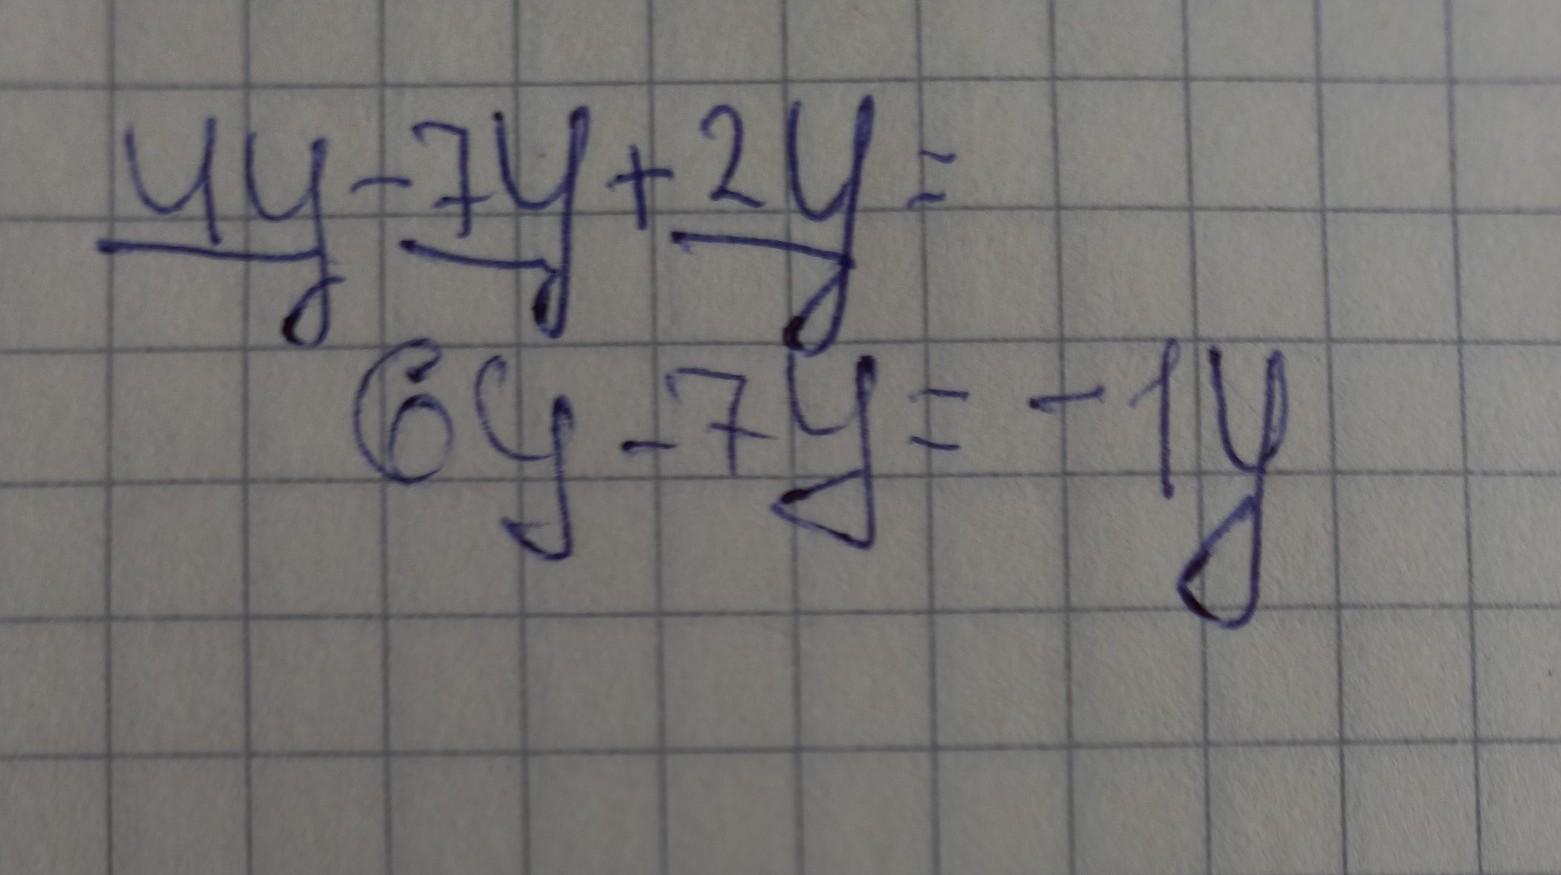 4y - 7y + 2y =
6y - 7y = - 1y